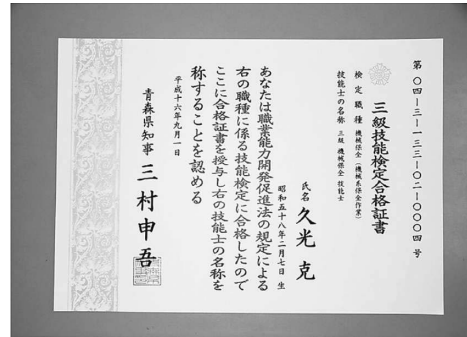 第〇四―三―一三三―〇二―〇〇〇四号
三級技能検定合格証書
検定職種 機械保全（機械系保全作業）
技能士の名称 三級 機械保全 技能士
氏名 久光 克
昭和五十八年二月七日 生
あなたは職業能力開発促進法の規定による
右の職種に係る技能検定に合格したので
ここに合格証書を授与し右の技能士の名称を
称することを認める
平成十六年九月一日
青森県知事 三村申吾